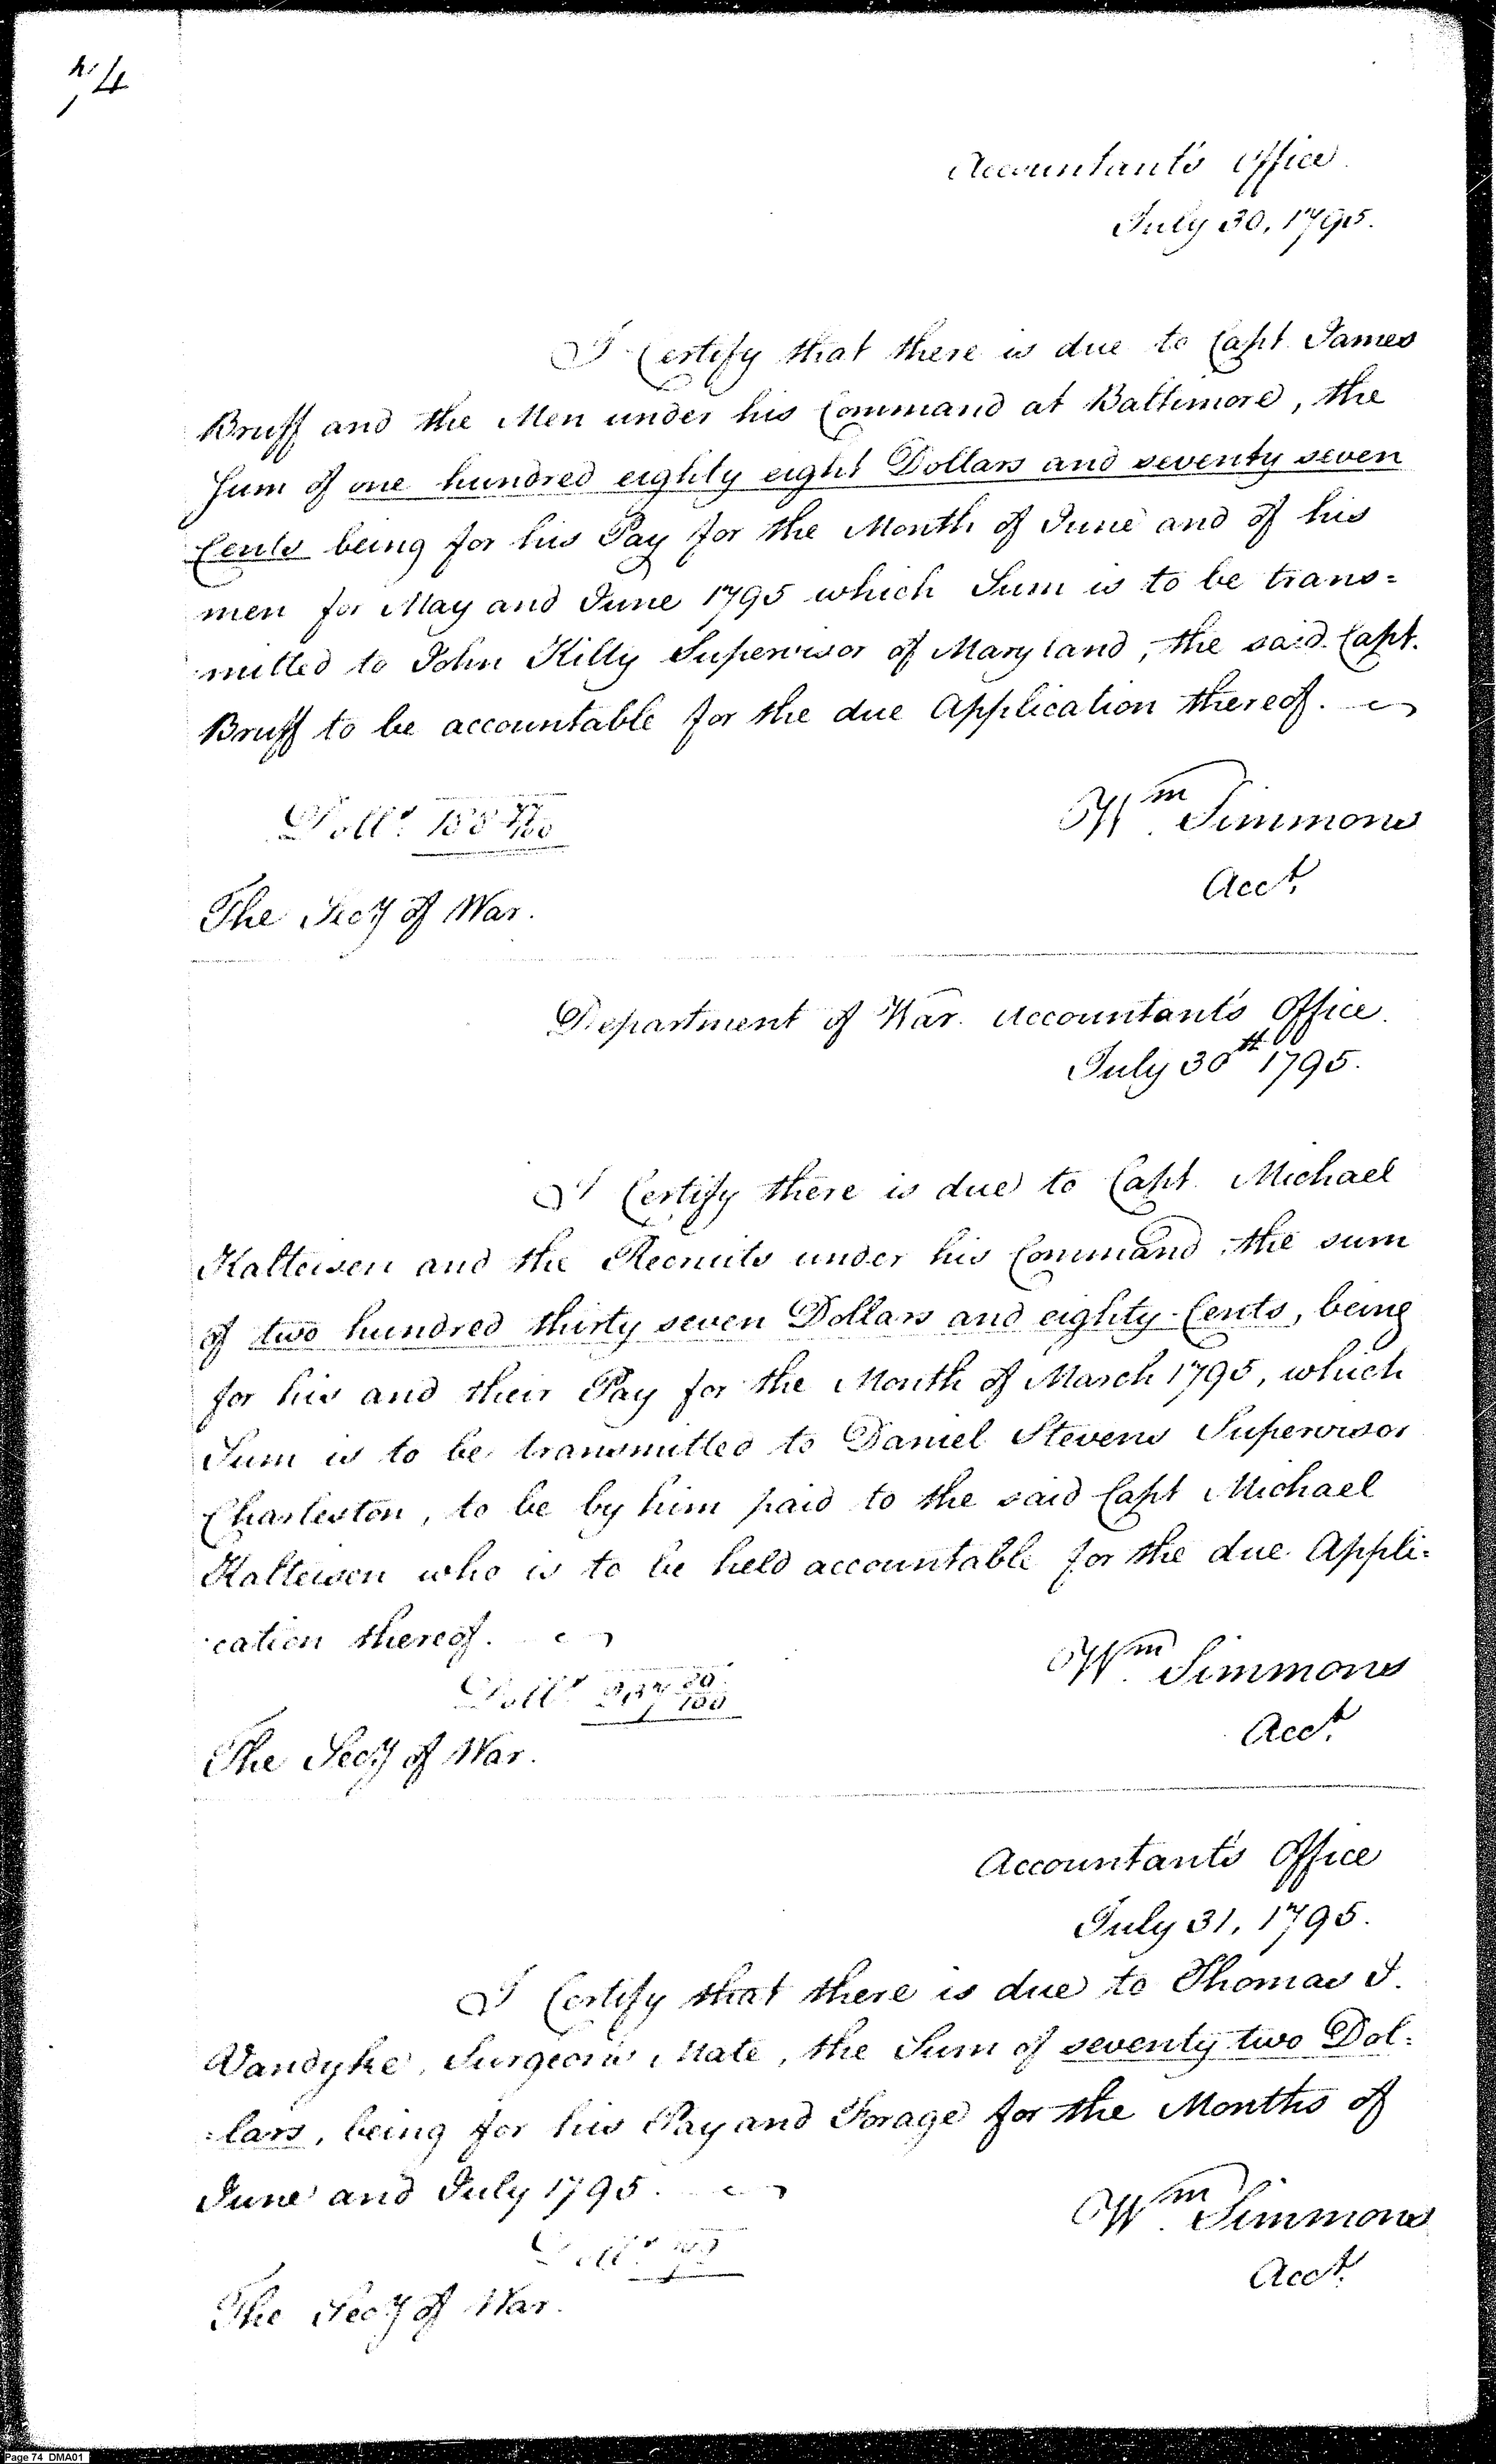 74
Accountant's Office.
July 30, 1795.
I Certify that there is due to Capt. James
Bruff and the Men under his Command at Baltimore, the
Sum of one hundred eighty eight Dollars and seventy seven
Cents being for his Pay for the Month of June and of his
men for May and June 1795 which Sum is to be trans=
mitted to John Kilty Supervisor of Maryland, the said Capt.
Bruff to be accountable for the due Application thereof.
Doll.s 188 77/100
Wm. Simmons
Acct.
The Secy of War.
Department of War. Accountant's Office.
July 30th 1795.
I Certify there is due to Capt. Michael
Kalteisen and the Recruits under his Command, the sum
of two hundred thirty seven Dollars and eighty Cents, being
for his and their Pay for the Month of March 1795, which
Sum is to be transmitted to Daniel Stevens Supervisor
Charleston, to be by him paid to the said Capt Michael
Kalteisen who is to be held accountable for the due Appli=
cation thereof.
Doll.s 237 80/100
Wm. Simmons
Acct.
The Secy of War.
Accountant's Office
July 31, 1795.
I Certify that there is due to Thomas J.
Vandyke, Surgeon's Mate, the Sum of seventy two Dol=
=lars, being for his Pay and Forage for the Months of
June and July 1795.
Doll.s 72
Wm. Simmons
Acct.
The Secy of War.
Page 74 DMA01